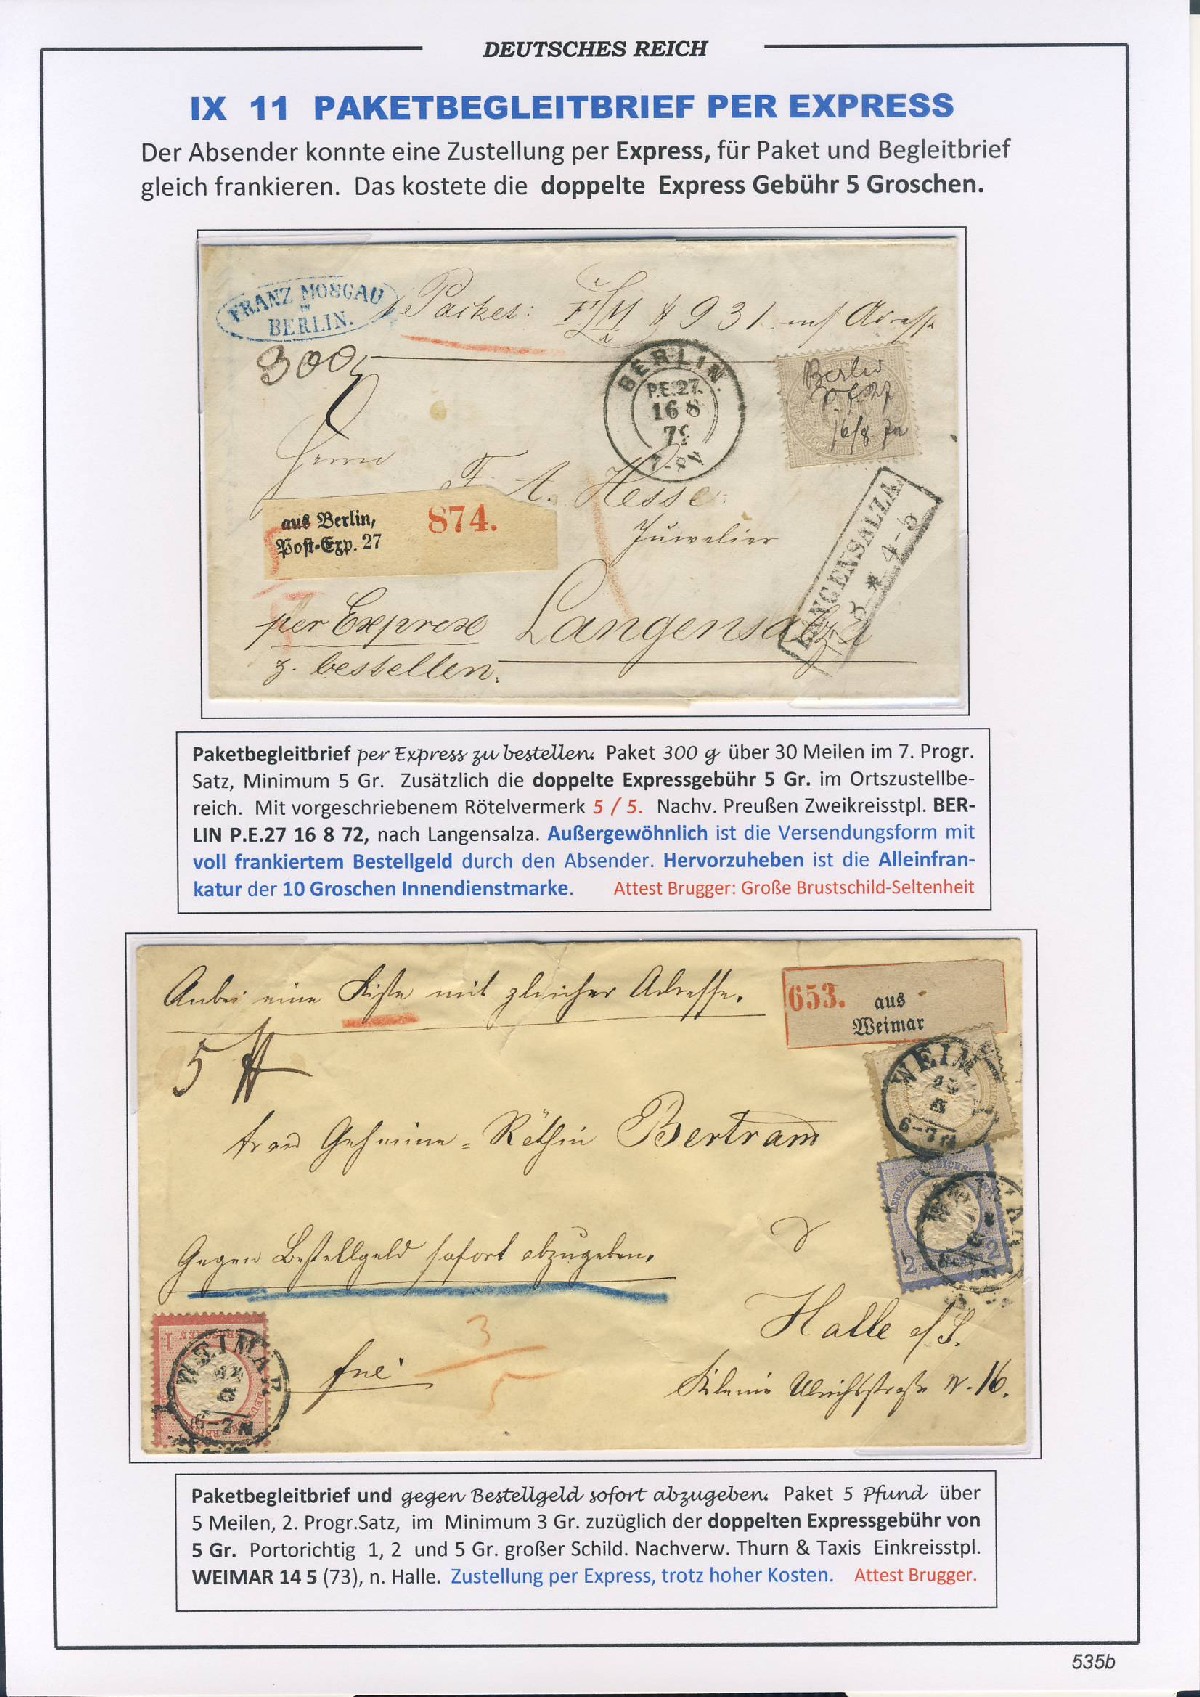 DEUTSCHES REICH
IX 11 PAKETBEGLEITBRIEF PER EXPRESS
Der Absender konnte eine Zustellung per Express, für Paket und Begleitbrief
gleich frankieren. Das kostete die doppelte Express Gebühr 5 Groschen.
FRANZ MOSGAU
IN
BERLIN.
Packet: 931. Adresse
300
BERLIN.
P.E.27.
16 8
Berlin
16/8 72
Herrn
F. A. Hesse
Juwelier
aus Berlin,
Post-Exp. 27
874.
LANGENSALZA
4-5
per Express Langensalza
z. bestellen.
Paketbegleitbrief per Express zu bestellen. Paket 300 g über 30 Meilen im 7. Progr.
Satz, Minimum 5 Gr. Zusätzlich die doppelte Expressgebühr 5 Gr. im Ortszustellbe-
reich. Mit vorgeschriebenem Rötelvermerk 5 / 5. Nachv. Preußen Zweikreisstpl. BER-
LIN P.E.27 16 8 72, nach Langensalza. Außergewöhnlich ist die Versendungsform mit
voll frankiertem Bestellgeld durch den Absender. Hervorzuheben ist die Alleinfran-
katur der 10 Groschen Innendienstmarke. Attest Brugger: Große Brustschild-Seltenheit
Anbei eine Kiste mit gleicher Adresse.
653. aus
Weimar
5
WEIM
6-7
Frau Geheime-Räthin Bertram
2 2
Gegen Bestellgeld sofort abzugeben.
Halle a/S.
WEIMAR
6-7
frei
3
5
Kleine Ulrichstraße N. 16.
Paketbegleitbrief und gegen Bestellgeld sofort abzugeben. Paket 5 Pfund über
5 Meilen, 2. Progr.Satz, im Minimum 3 Gr. zuzüglich der doppelten Expressgebühr von
5 Gr. Portorichtig 1, 2 und 5 Gr. großer Schild. Nachverw. Thurn & Taxis Einkreisstpl.
WEIMAR 14 5 (73), n. Halle. Zustellung per Express, trotz hoher Kosten. Attest Brugger.
535b